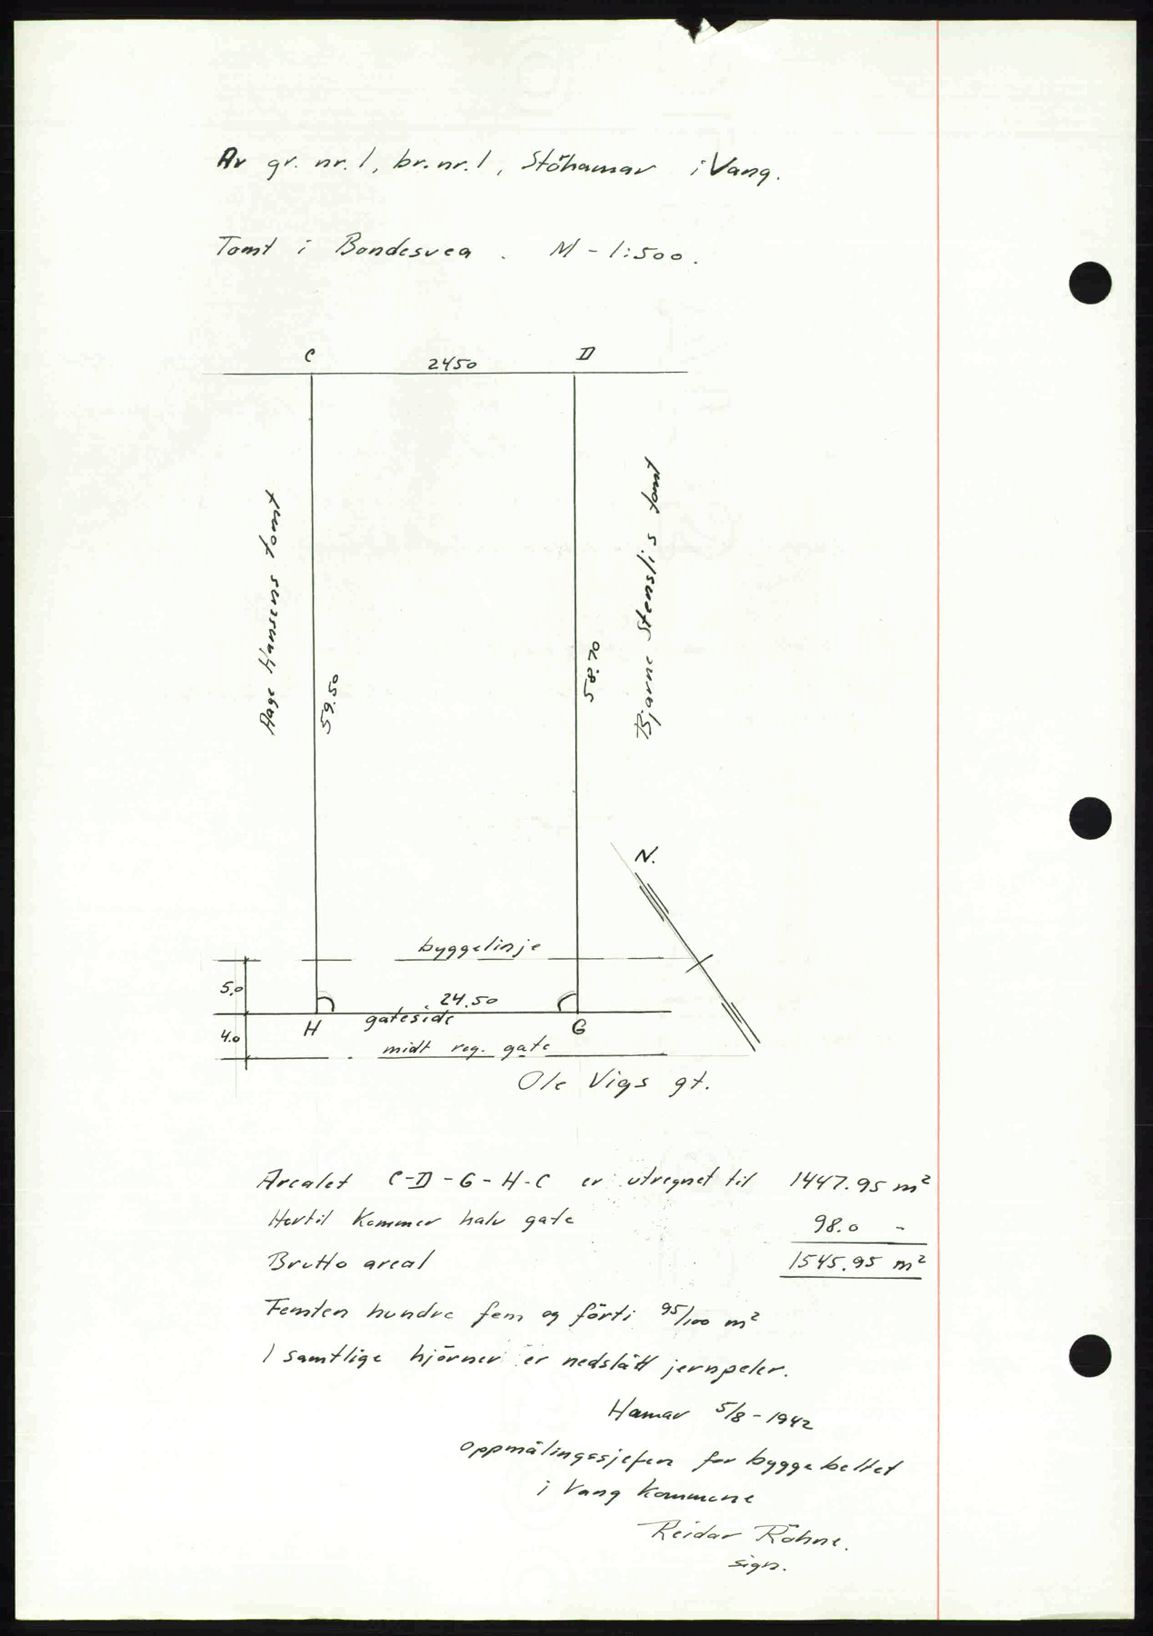 Av gr. nr. 1, br. nr. 1, Stöhamar i Vang.
Tomt i Bondesvea. M - 1:500.
C
2450
D
Aage Hanssens tomt
59.50
58.70
Bjarne Stenslis tomt
N.
byggelinje
5.0
24.50
H
gateside
G
4.0
midt reg. gate
Ole Vigs gt.
Arealet C-D-G-H-C er utregnet til 1447.95 m²
Hertil kommer halv gate 98.0 -
Brutto areal 1545.95 m²
Femten hundre fem og förti 95/100 m²
I samtlige hjörner er nedslått jernpeler.
Hamar 5/8-1942
Oppmålingssjefen for byggebeltet
i Vang Kommune
Reidar Röhne.
sign.